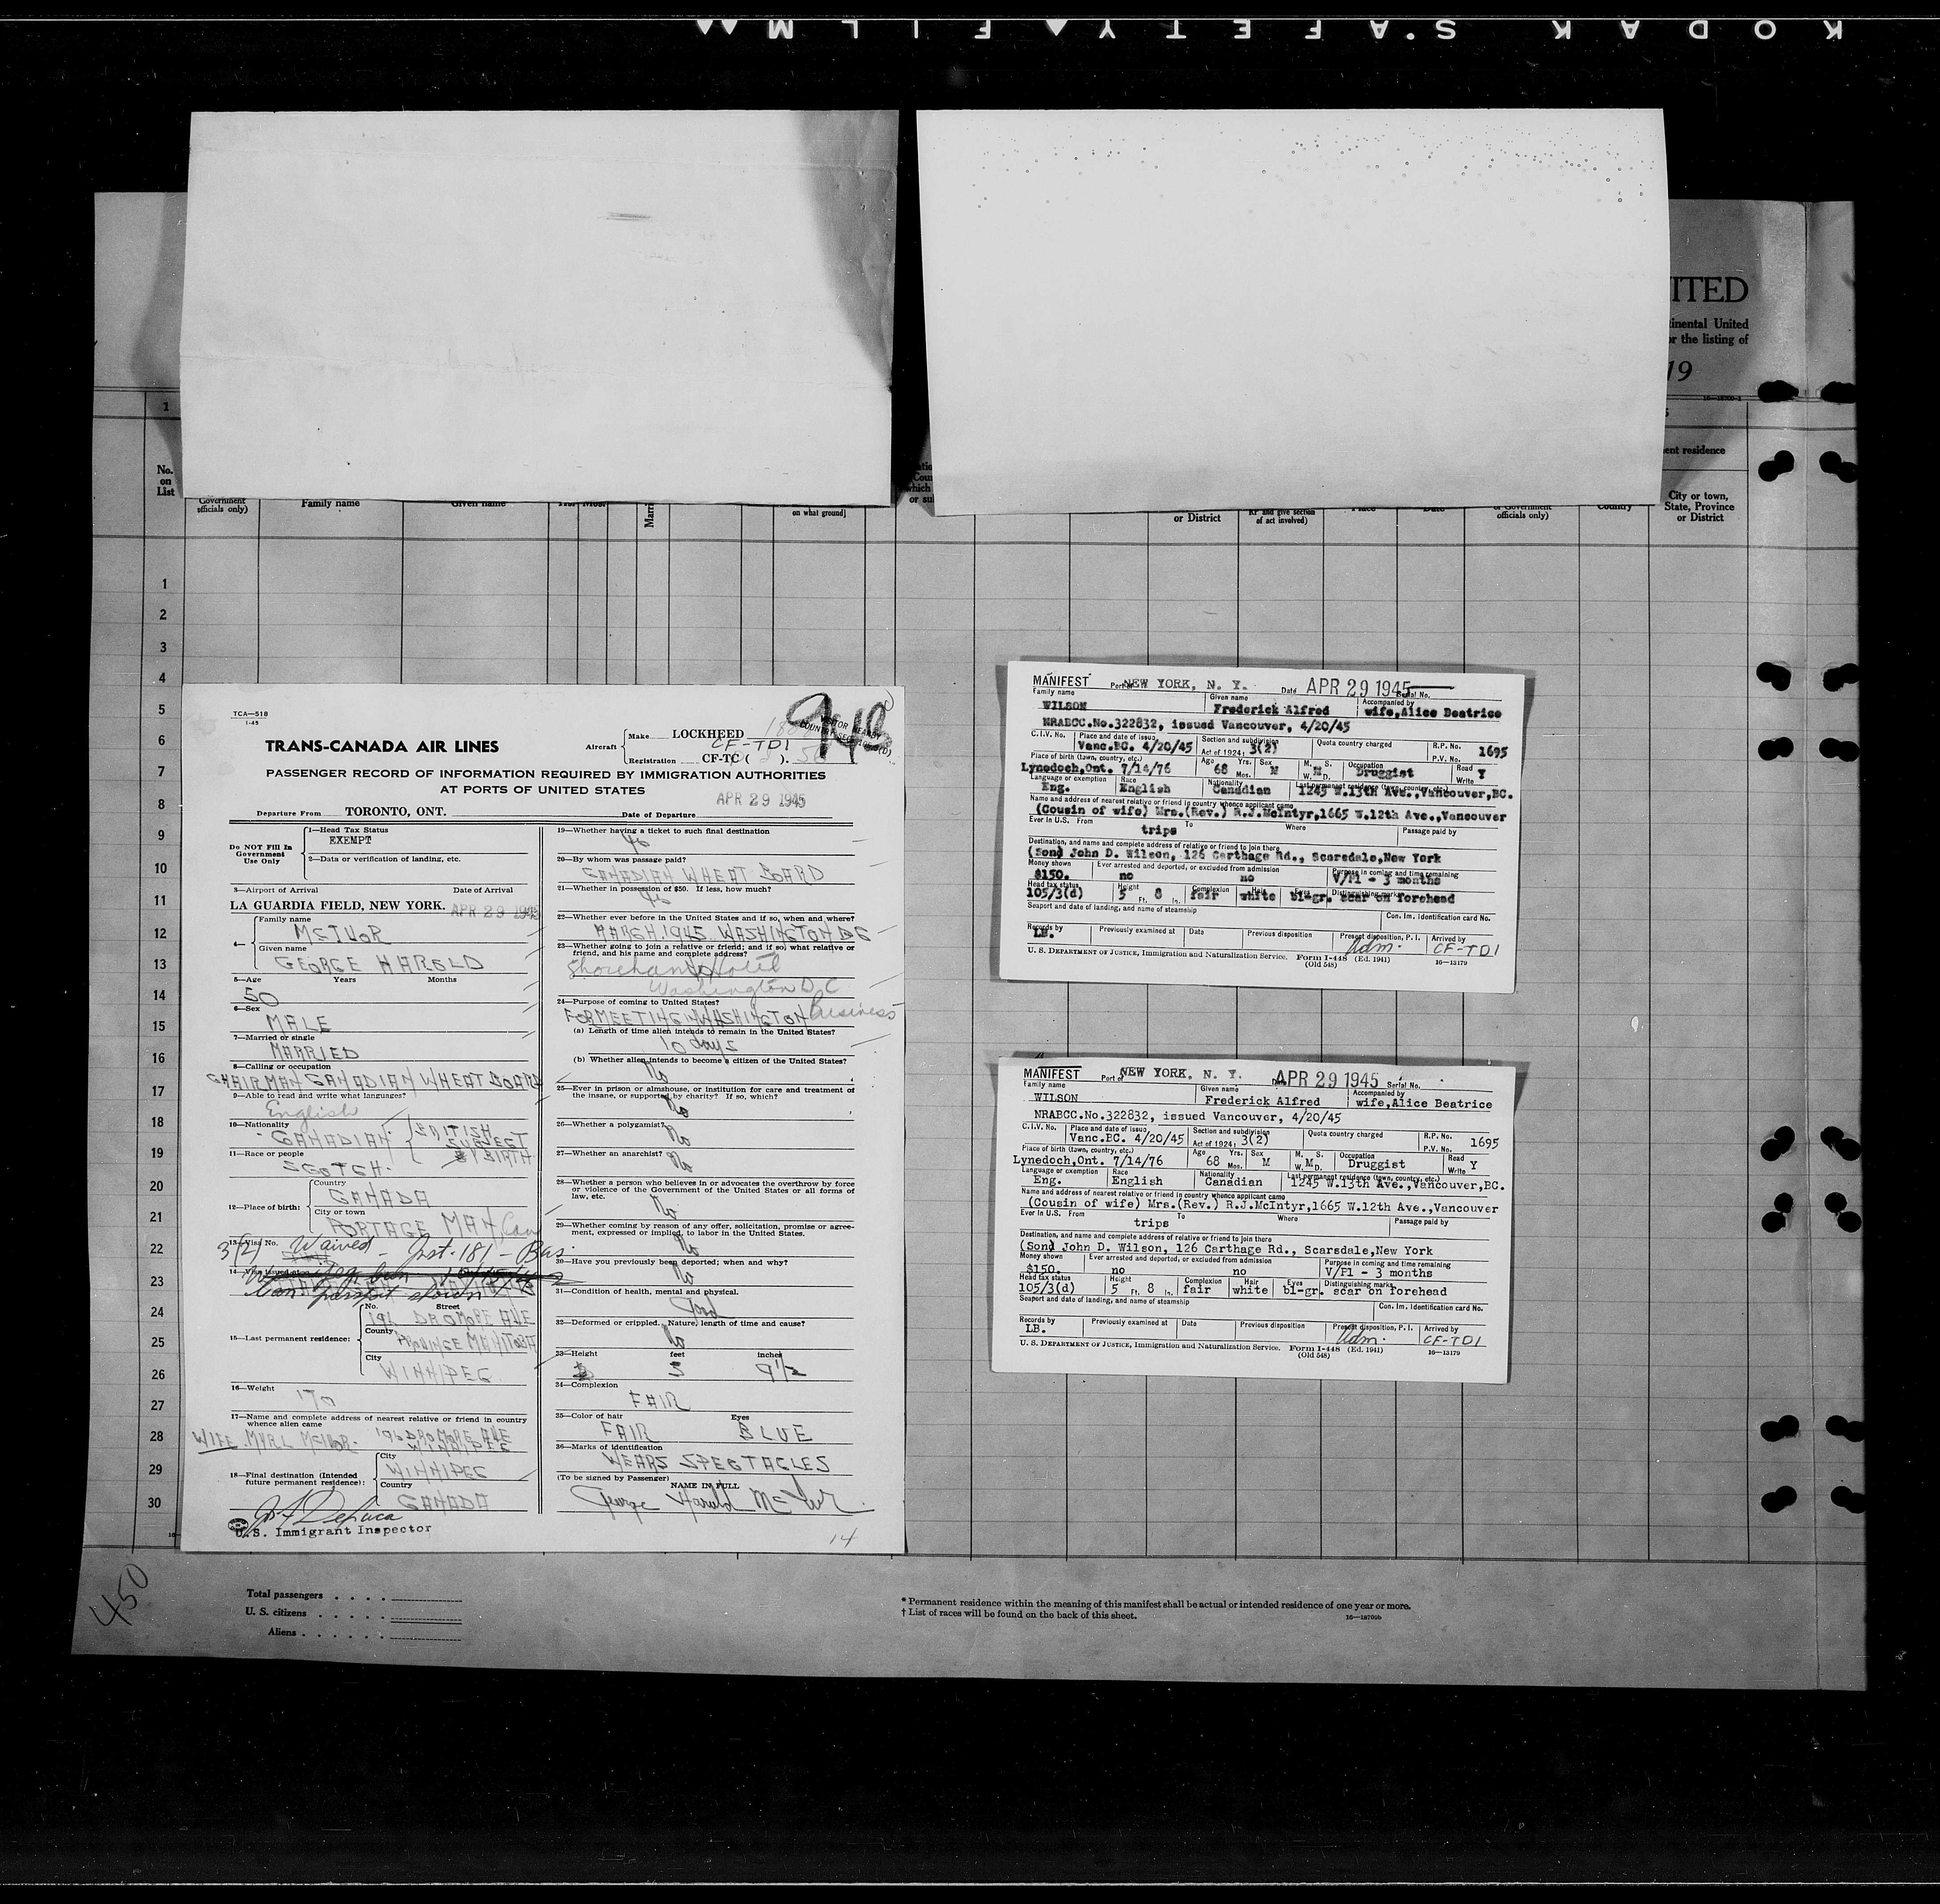 KODAK SAFETY FILM
ITED
tinental United
or the listing of
19
16—18700-1
ent residence
1
No.
on
List
Government
officials only)
Family name
Given name
on what ground]
or District
RP and give section
of act involved)
Place
Date
or Government
officials only)
Country
City or town,
State, Province
or District
1
2
3
4
5
6
7
8
9
10
11
12
13
14
15
16
17
18
19
20
21
22
23
24
25
26
27
28
29
30
TCA—518
1-45
TRANS-CANADA AIR LINES
Aircraft
Make LOCKHEED
CF-TDI
Registration CF-TC ( ).
PASSENGER RECORD OF INFORMATION REQUIRED BY IMMIGRATION AUTHORITIES
AT PORTS OF UNITED STATES
APR 29 1945
Departure From TORONTO, ONT. Date of Departure
Do NOT Fill In
Government
Use Only
1—Head Tax Status
EXEMPT
2—Data or verification of landing, etc.
3—Airport of Arrival Date of Arrival
LA GUARDIA FIELD, NEW YORK. APR 29 1945
4— Family name
McIVOR
Given name
GEORGE HAROLD
5—Age Years Months
50
6—Sex
MALE
7—Married or single
MARRIED
8—Calling or occupation
CHAIRMAN CANADIAN WHEAT BOARD
9—Able to read and write what languages?
English
10—Nationality
CANADIAN
BRITISH
SUBJECT
BY BIRTH
11—Race or people
SCOTCH.
12—Place of birth:
Country
CANADA
City or town
PORTAGE MAN, Can
13—Visa No.
3(2) Waived - Inst. 181 - Bus.
Can. passport shown
15—Last permanent residence:
No. Street
196 DROMORE AVE
County
PROVINCE MANITOBA
City
WINNIPEG
16—Weight
170
17—Name and complete address of nearest relative or friend in country
whence alien came
WIFE. MYRL McIVOR. 196 DROMORE AVE
WINNIPEG
18—Final destination (Intended
future permanent residence):
City
WINNIPEG
Country
CANADA
DeLuca
U.S. Immigrant Inspector
19—Whether having a ticket to such final destination
20—By whom was passage paid?
CANADIAN WHEAT BOARD
21—Whether in possession of $50. If less, how much?
22—Whether ever before in the United States and if so, when and where?
MARCH 1945 WASHINGTON DC
23—Whether going to join a relative or friend; and if so, what relative or
friend, and his name and complete address?
Shoreham Hotel
Washington D.C
24—Purpose of coming to United States?
FOR MEETING IN WASHINGTON business
(a) Length of time alien intends to remain in the United States?
10 days
(b) Whether alien intends to become a citizen of the United States?
No
25—Ever in prison or almshouse, or institution for care and treatment of
the insane, or supported by charity? If so, which?
No
26—Whether a polygamist?
No
27—Whether an anarchist?
No
28—Whether a person who believes in or advocates the overthrow by force
or violence of the Government of the United States or all forms of
law, etc.
No
29—Whether coming by reason of any offer, solicitation, promise or agree-
ment, expressed or implied, to labor in the United States.
No
30—Have you previously been deported; when and why?
No
31—Condition of health, mental and physical.
Good
32—Deformed or crippled. Nature, length of time and cause?
No
33—Height feet inches
5 9 1/2
34—Complexion
FAIR
35—Color of hair Eyes
FAIR BLUE
36—Marks of identification
WEARS SPECTACLES
(To be signed by Passenger)
NAME IN FULL
George Harold McIvor.
14
MANIFEST Port of NEW YORK, N. Y. Date APR 29 1945 Serial No.
Family name Given name Accompanied by
WILSON Frederick Alfred wife,Alice Beatrice
NRABCC.No.322832, issued Vancouver, 4/20/45
C.I.V. No. Place and date of issue Section and subdivision Quota country charged R.P. No. 1695
Vanc.BC. 4/20/45 Act of 1924: 3(2) P.V. No.
Place of birth (town, country, etc.) Age Yrs. Sex M. S. Occupation Read
Lynedoch,Ont. 7/14/76 68 Mos. M W. M D. Druggist Write Y
Language or exemption Race Nationality Last permanent residence (town, country, etc.)
Eng. English Canadian 1245 W.13th Ave.,Vancouver,BC.
Name and address of nearest relative or friend in country whence applicant came
(Cousin of wife) Mrs.(Rev.) R.J.McIntyr,1665 W.12th Ave.,Vancouver
Ever in U.S. From To Where Passage paid by
trips
Destination, and name and complete address of relative or friend to join there
(Son) John D. Wilson, 126 Carthage Rd., Scarsdale,New York
Money shown Ever arrested and deported, or excluded from admission Purpose in coming and time remaining
$150. no no V/P1 - 3 months
Head tax status Height Complexion Hair Eyes Distinguishing marks
105/3(d) 5 Ft. 8 In. fair white bl-gr. scar on forehead
Seaport and date of landing, and name of steamship Con. Im. Identification card No.
Records by Previously examined at Date Previous disposition Present disposition, P. I. Arrived by
LB. Adm. CF-TDI
U. S. DEPARTMENT OF JUSTICE, Immigration and Naturalization Service. Form I-448 (Ed. 1941) 16—13179
(Old 548)
MANIFEST Port of NEW YORK, N. Y. Date APR 29 1945 Serial No.
Family name Given name Accompanied by
WILSON Frederick Alfred wife,Alice Beatrice
NRABCC.No.322832, issued Vancouver, 4/20/45
C.I.V. No. Place and date of issue Section and subdivision Quota country charged R.P. No. 1695
Vanc.BC. 4/20/45 Act of 1924: 3(2) P.V. No.
Place of birth (town, country, etc.) Age Yrs. Sex M. S. Occupation Read
Lynedoch,Ont. 7/14/76 68 Mos. M W. M D. Druggist Write Y
Language or exemption Race Nationality Last permanent residence (town, country, etc.)
Eng. English Canadian 1245 W.13th Ave.,Vancouver,BC.
Name and address of nearest relative or friend in country whence applicant came
(Cousin of wife) Mrs.(Rev.) R.J.McIntyr,1665 W.12th Ave.,Vancouver
Ever in U.S. From To Where Passage paid by
trips
Destination, and name and complete address of relative or friend to join there
(Son) John D. Wilson, 126 Carthage Rd., Scarsdale,New York
Money shown Ever arrested and deported, or excluded from admission Purpose in coming and time remaining
$150. no no V/P1 - 3 months
Head tax status Height Complexion Hair Eyes Distinguishing marks
105/3(d) 5 Ft. 8 In. fair white bl-gr. scar on forehead
Seaport and date of landing, and name of steamship Con. Im. Identification card No.
Records by Previously examined at Date Previous disposition Present disposition, P. I. Arrived by
LB. Adm. CF-TDI
U. S. DEPARTMENT OF JUSTICE, Immigration and Naturalization Service. Form I-448 (Ed. 1941) 16—13179
(Old 548)
450
Total passengers
U. S. citizens
Aliens
* Permanent residence within the meaning of this manifest shall be actual or intended residence of one year or more.
† List of races will be found on the back of this sheet. 16—18700b